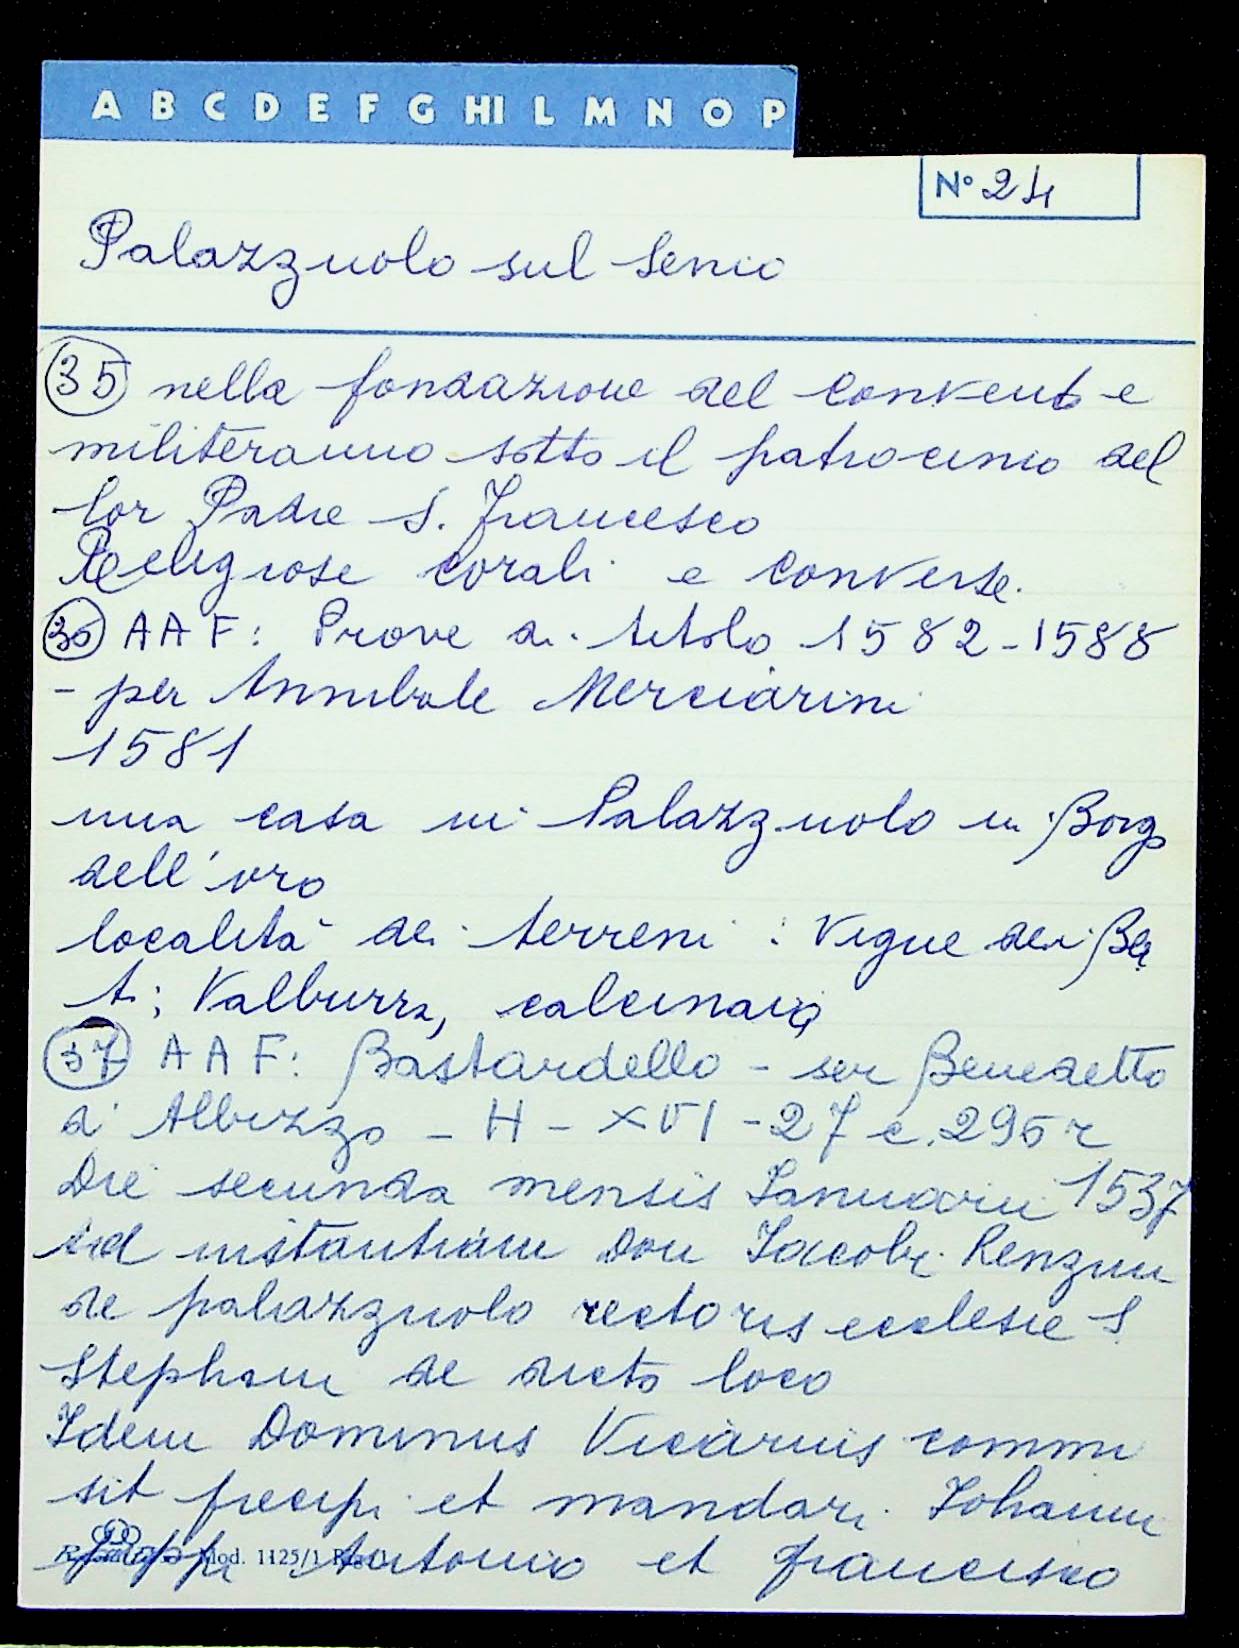 A B C D E F G HI L M N O P
N° 24
Palazzuolo sul Senio
35 nella fondazione del convento e
militeranno sotto il patrocinio del
lor Padre S. Francesco
Religiose corali e converse.
36 AAF: Prove di titolo 1582-1588
- per Annibale Merciarini
1581
una casa in Palazzuolo in Borgo
dell'oro
località dei terreni: Vigne dei
Valburra, calcinaia
37 AAF: Bastardello - ser Benedetto
d'Albizzo - H - XVI - 27 c. 296 r
Die secunda mensis Januarii 1537
ad instantiam Don Jacobi Renzini
de palazzuolo rectoris ecclesie S.
Stephani de dicto loco
Idem Dominus Vicarius commi
sit precipi et mandari Johanni
pippi Antonio et francisco
Mod. 1125/1